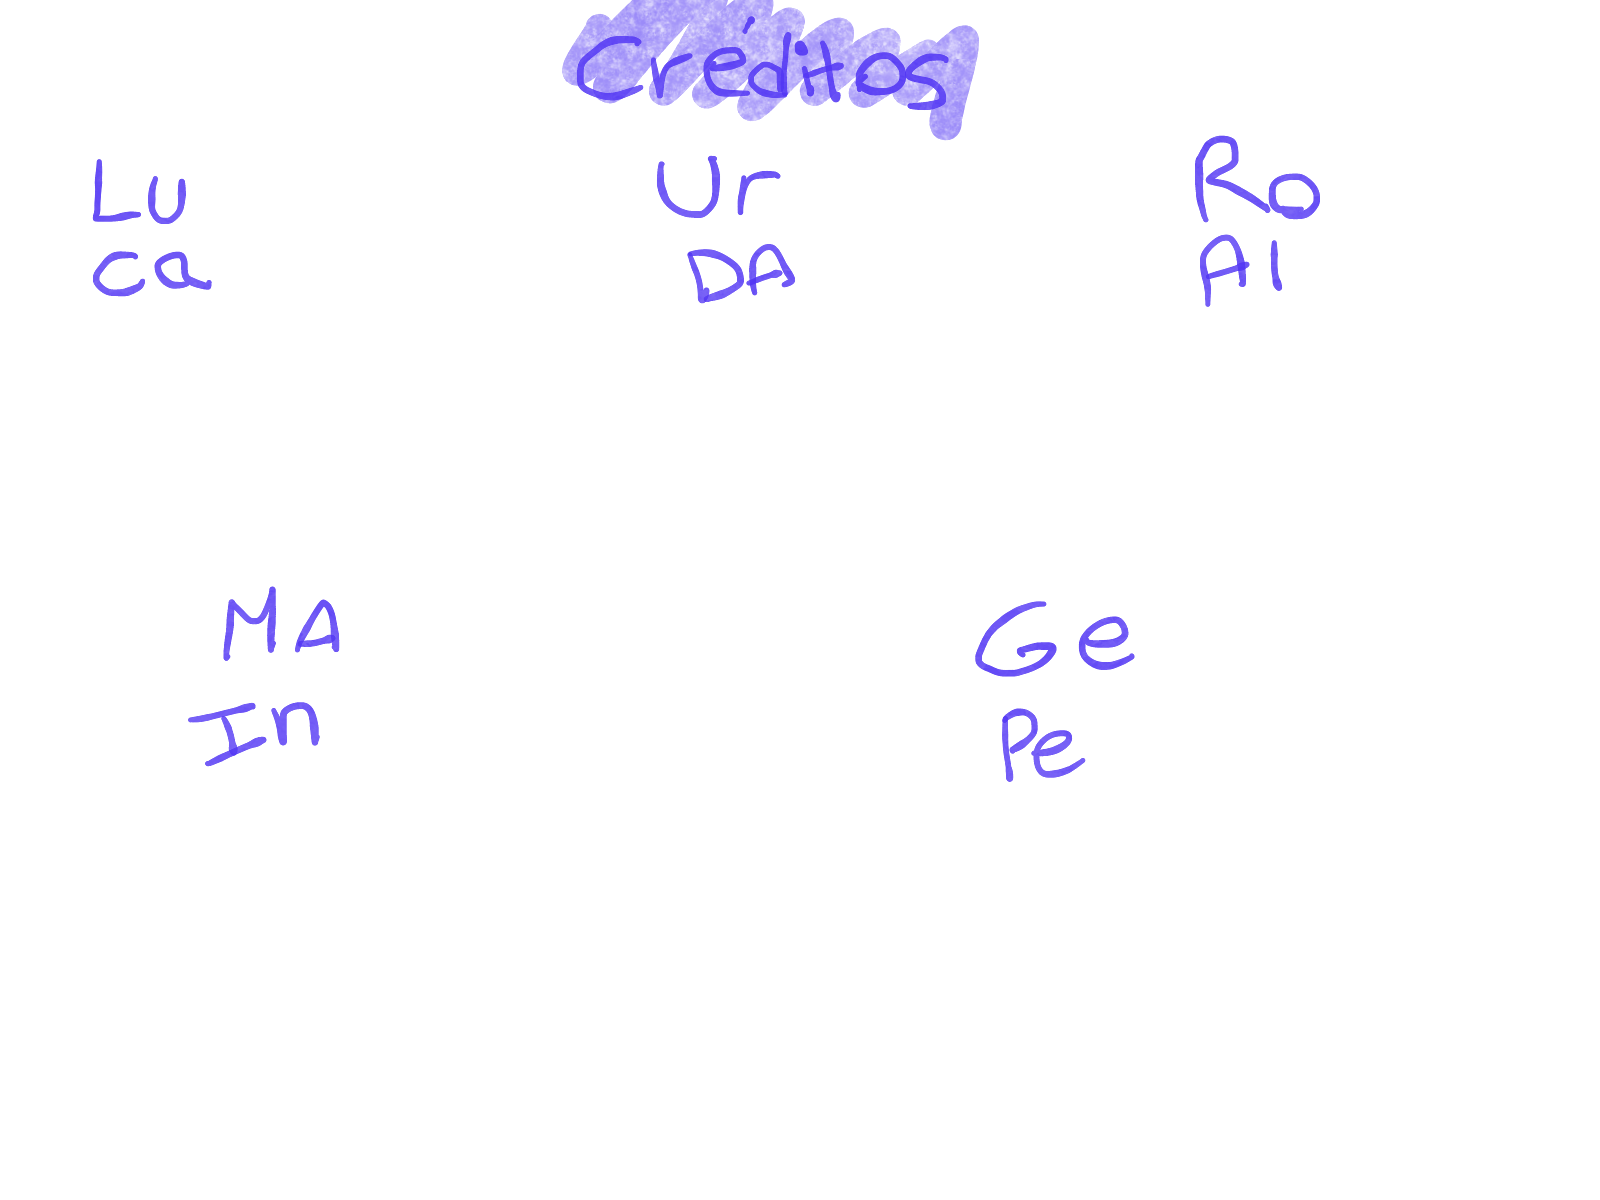 Créditos
Lu
Ca
Ur
DA
Ro
Al
MA
In
Ge
Pe